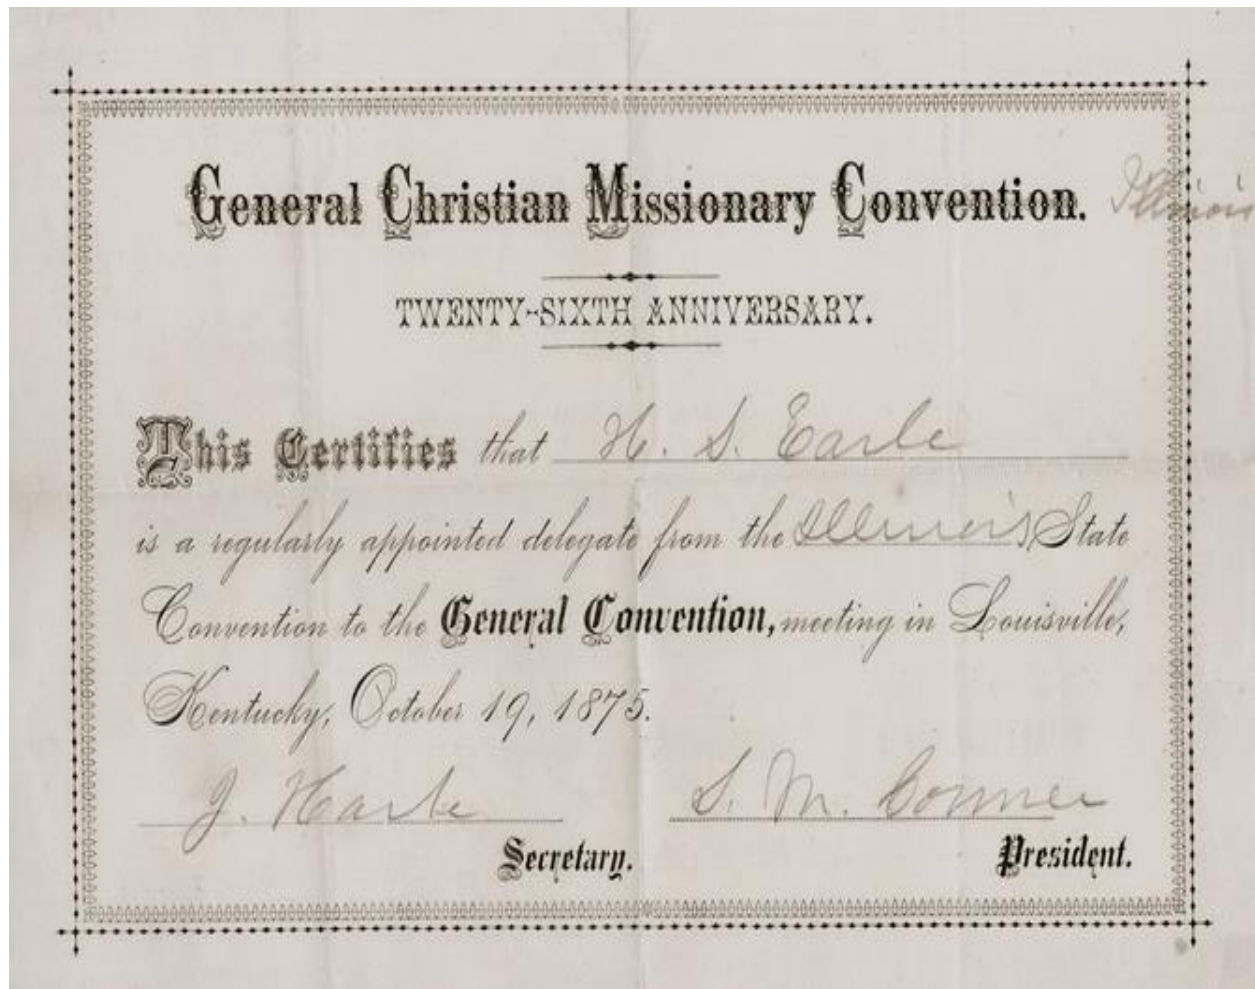 General Christian Missionary Convention.
Illinois
TWENTY-SIXTH ANNIVERSARY.
This Certifies that H. S. Earle
is a regularly appointed delegate from the Illinois State
Convention to the General Convention, meeting in Louisville,
Kentucky, October 19, 1875.
J. S. M. Conner
Secretary. President.